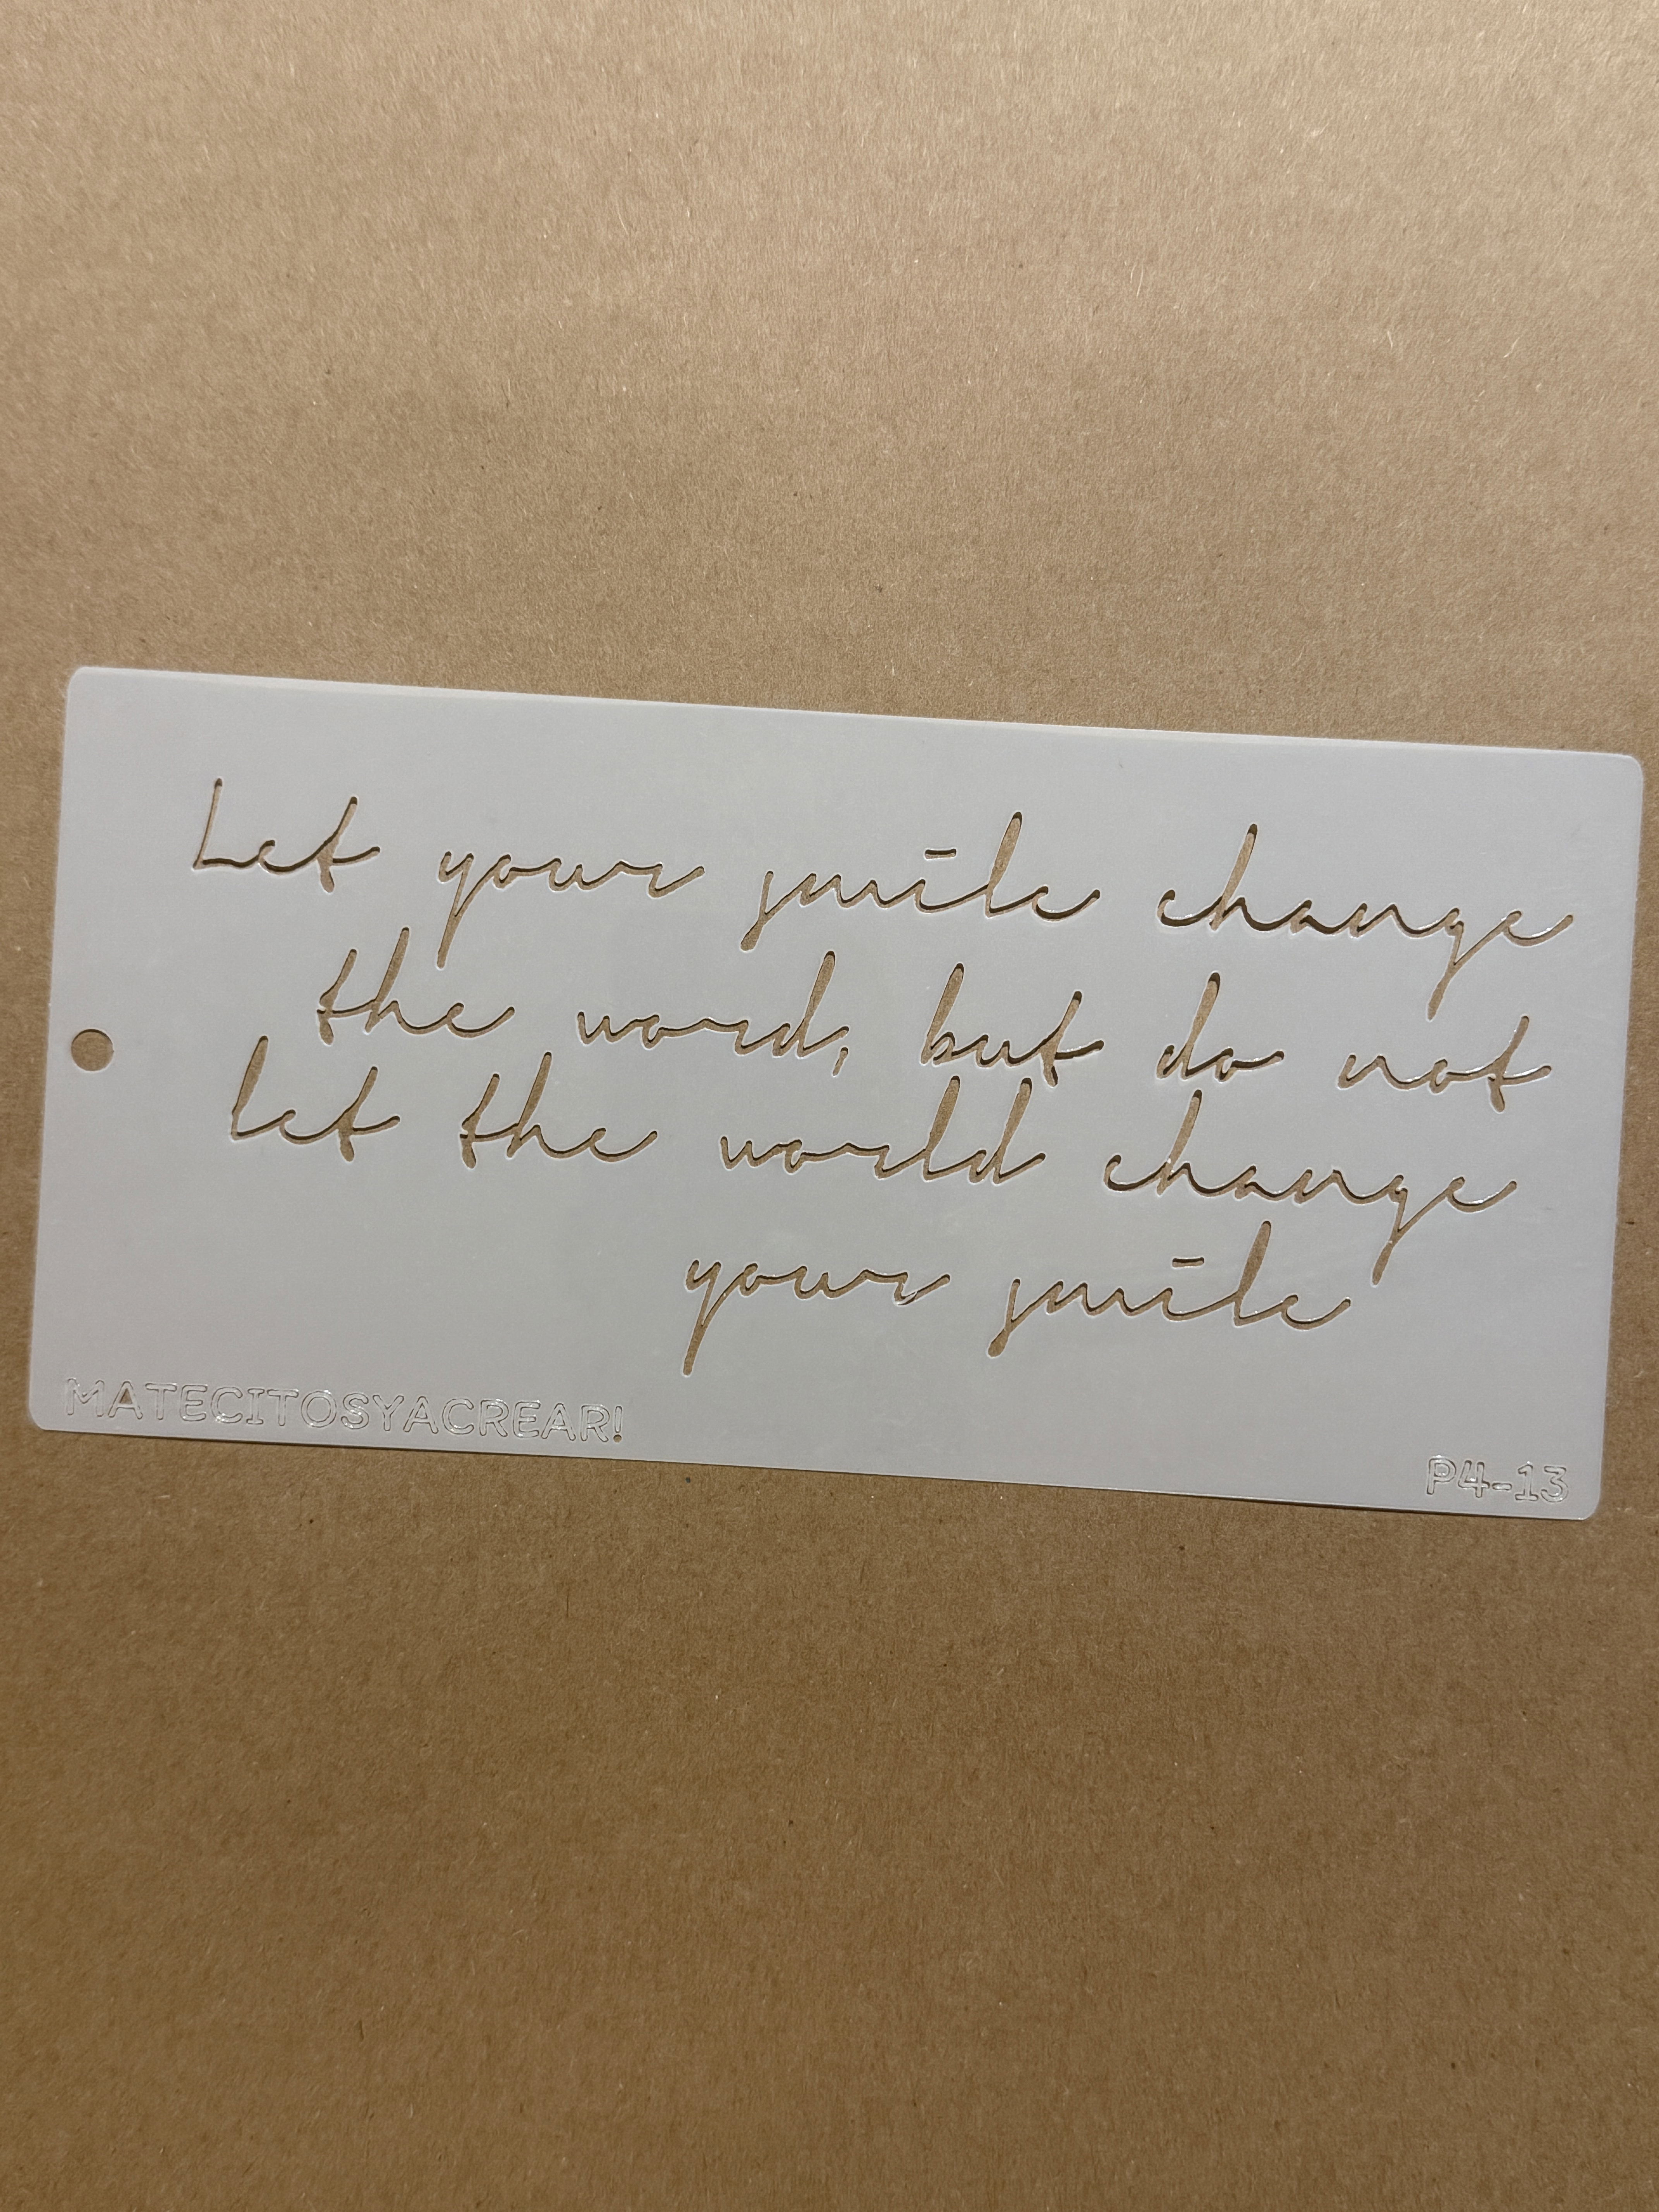 Let your smile change
the word, but do not
let the world change
your smile
MATECITOSYACREAR!
P4-13